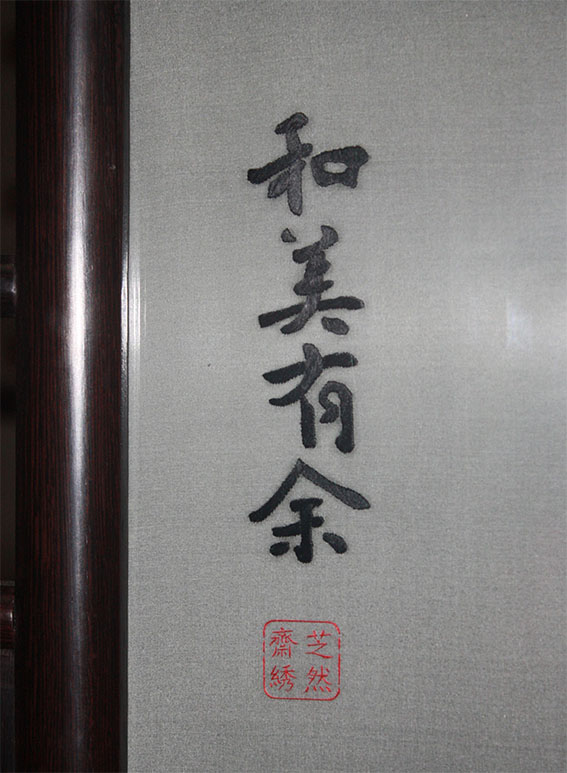 和美有余
芝然
齋綉